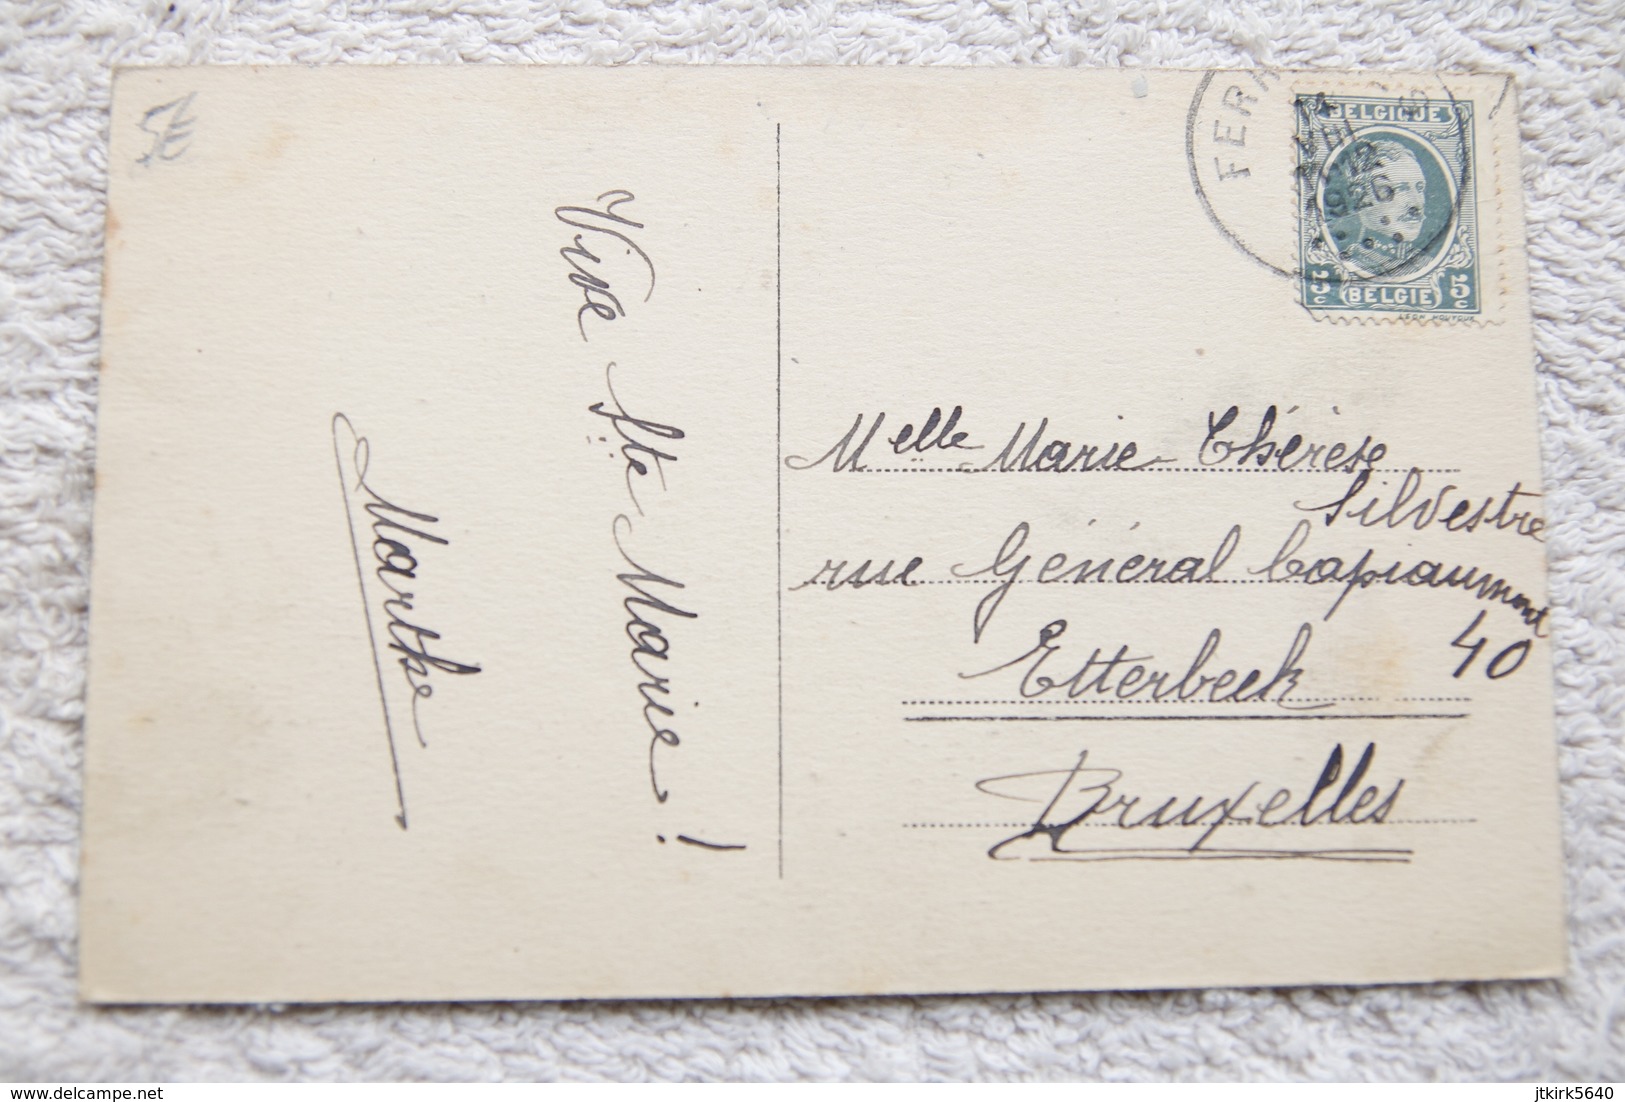 5€
Vive Ste Marie !
Marthe
FER
BELGIQUE
5c BELGIE 5c
Melle Marie-Thérèse
Silvestre
rue Général Capiaumont
40
Etterbeek
Bruxelles
delcampe.net
jtkirk5640